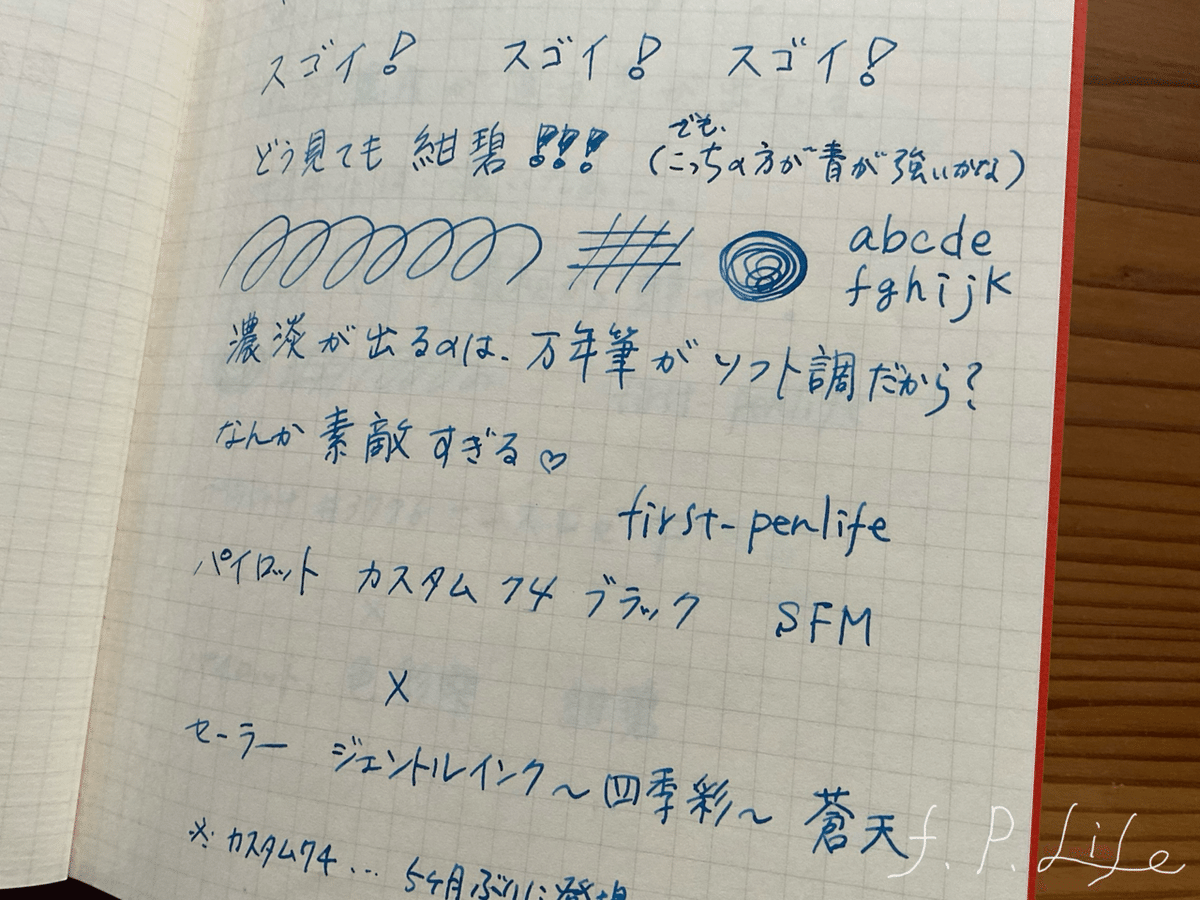 スゴイ! スゴイ! スゴイ!
どう見ても 紺碧!!! (でも、こっちの方が青が強いかな)
abcde
fghijk
濃淡が出るのは、万年筆がソフト調だから?
なんか素敵すぎる♡
first-penlife
パイロット カスタム74 ブラック SFM
×
セーラー ジェントルインク〜四季彩〜 蒼天
※カスタム74... 5ヶ月ぶりに
f. P. Life